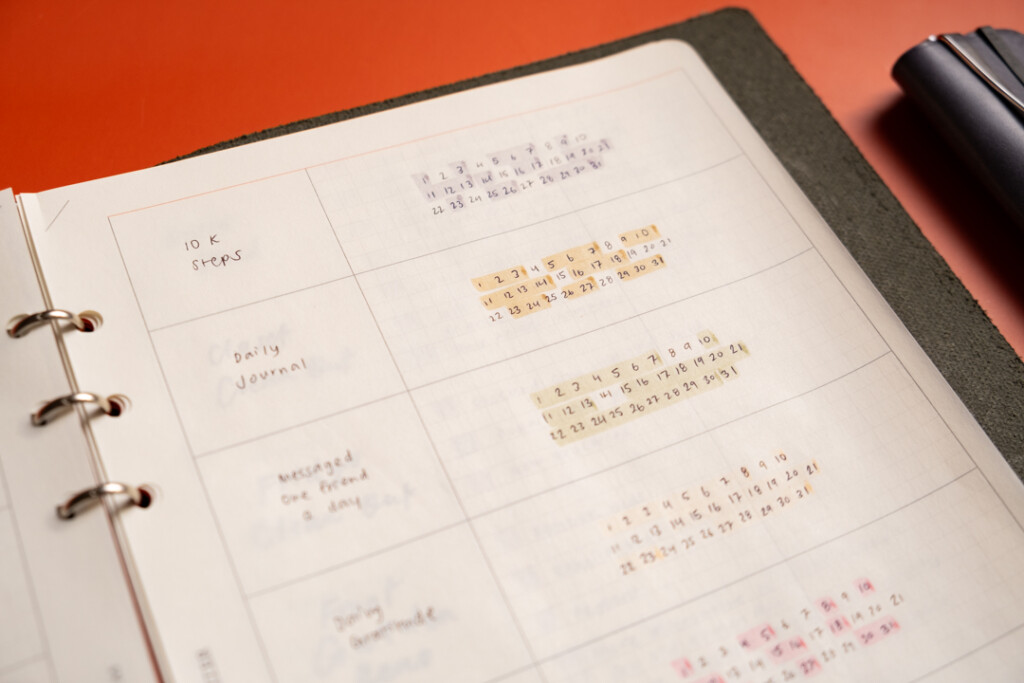 10 K
steps
1 2 3 4 5 6 7 8 9 10
11 12 13 14 15 16 17 18 19 20 21
22 23 24 25 26 27 28 29 30 31
Daily
Journal
1 2 3 4 5 6 7 8 9 10
11 12 13 14 15 16 17 18 19 20 21
22 23 24 25 26 27 28 29 30 31
Messaged
one friend
a day
1 2 3 4 5 6 7 8 9 10
11 12 13 14 15 16 17 18 19 20 21
22 23 24 25 26 27 28 29 30 31
Daily
Gratitude
1 2 3 4 5 6 7 8 9 10
11 12 13 14 15 16 17 18 19 20 21
22 23 24 25 26 27 28 29 30 31
1 2 3 4 5 6 7 8 9 10
13 14 15 16 17 18 19 20 21
27 28 29 30 31